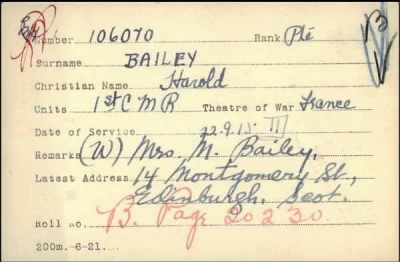 Number 106070 Rank Pte
Surname BAILEY
Christian Name Harold
Units 1st C M R Theatre of War France
Date of Service 22.9.15 II
Remarks (W) Mrs. M. Bailey,
Latest Address 14 Montgomery St.,
Edinburgh, Scot.
Roll No. B. Page 20230
200m.-6-21.